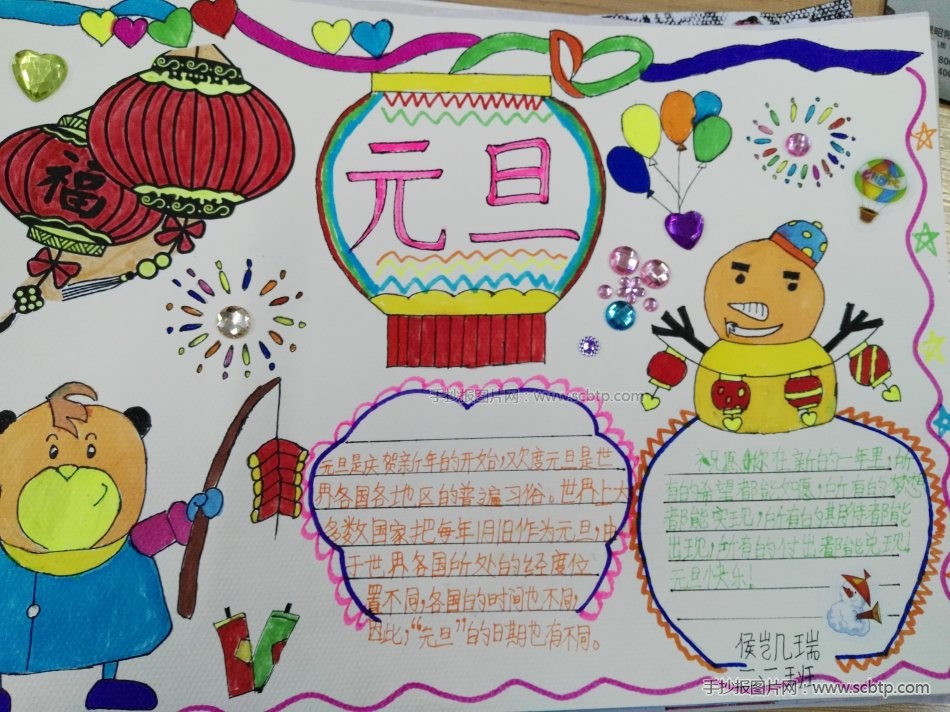 福
元旦
手抄报图片网：www.scbtp.com
元旦是庆贺新年的开始，欢度元旦是世
界各国各地区的普遍习俗。世界上大
多数国家把每年1月1日作为元旦，由
于世界各国所处的经度位
置不同，各国的时间也不同，
因此，“元旦”的日期也有不同。
祝愿你在新的一年里，所
有的希望都能如愿，所有的梦想
都能实现，所有的期待都能
出现，所有的付出都能兑现！
元旦快乐！
二、二班
手抄报图片网：www.scbtp.com